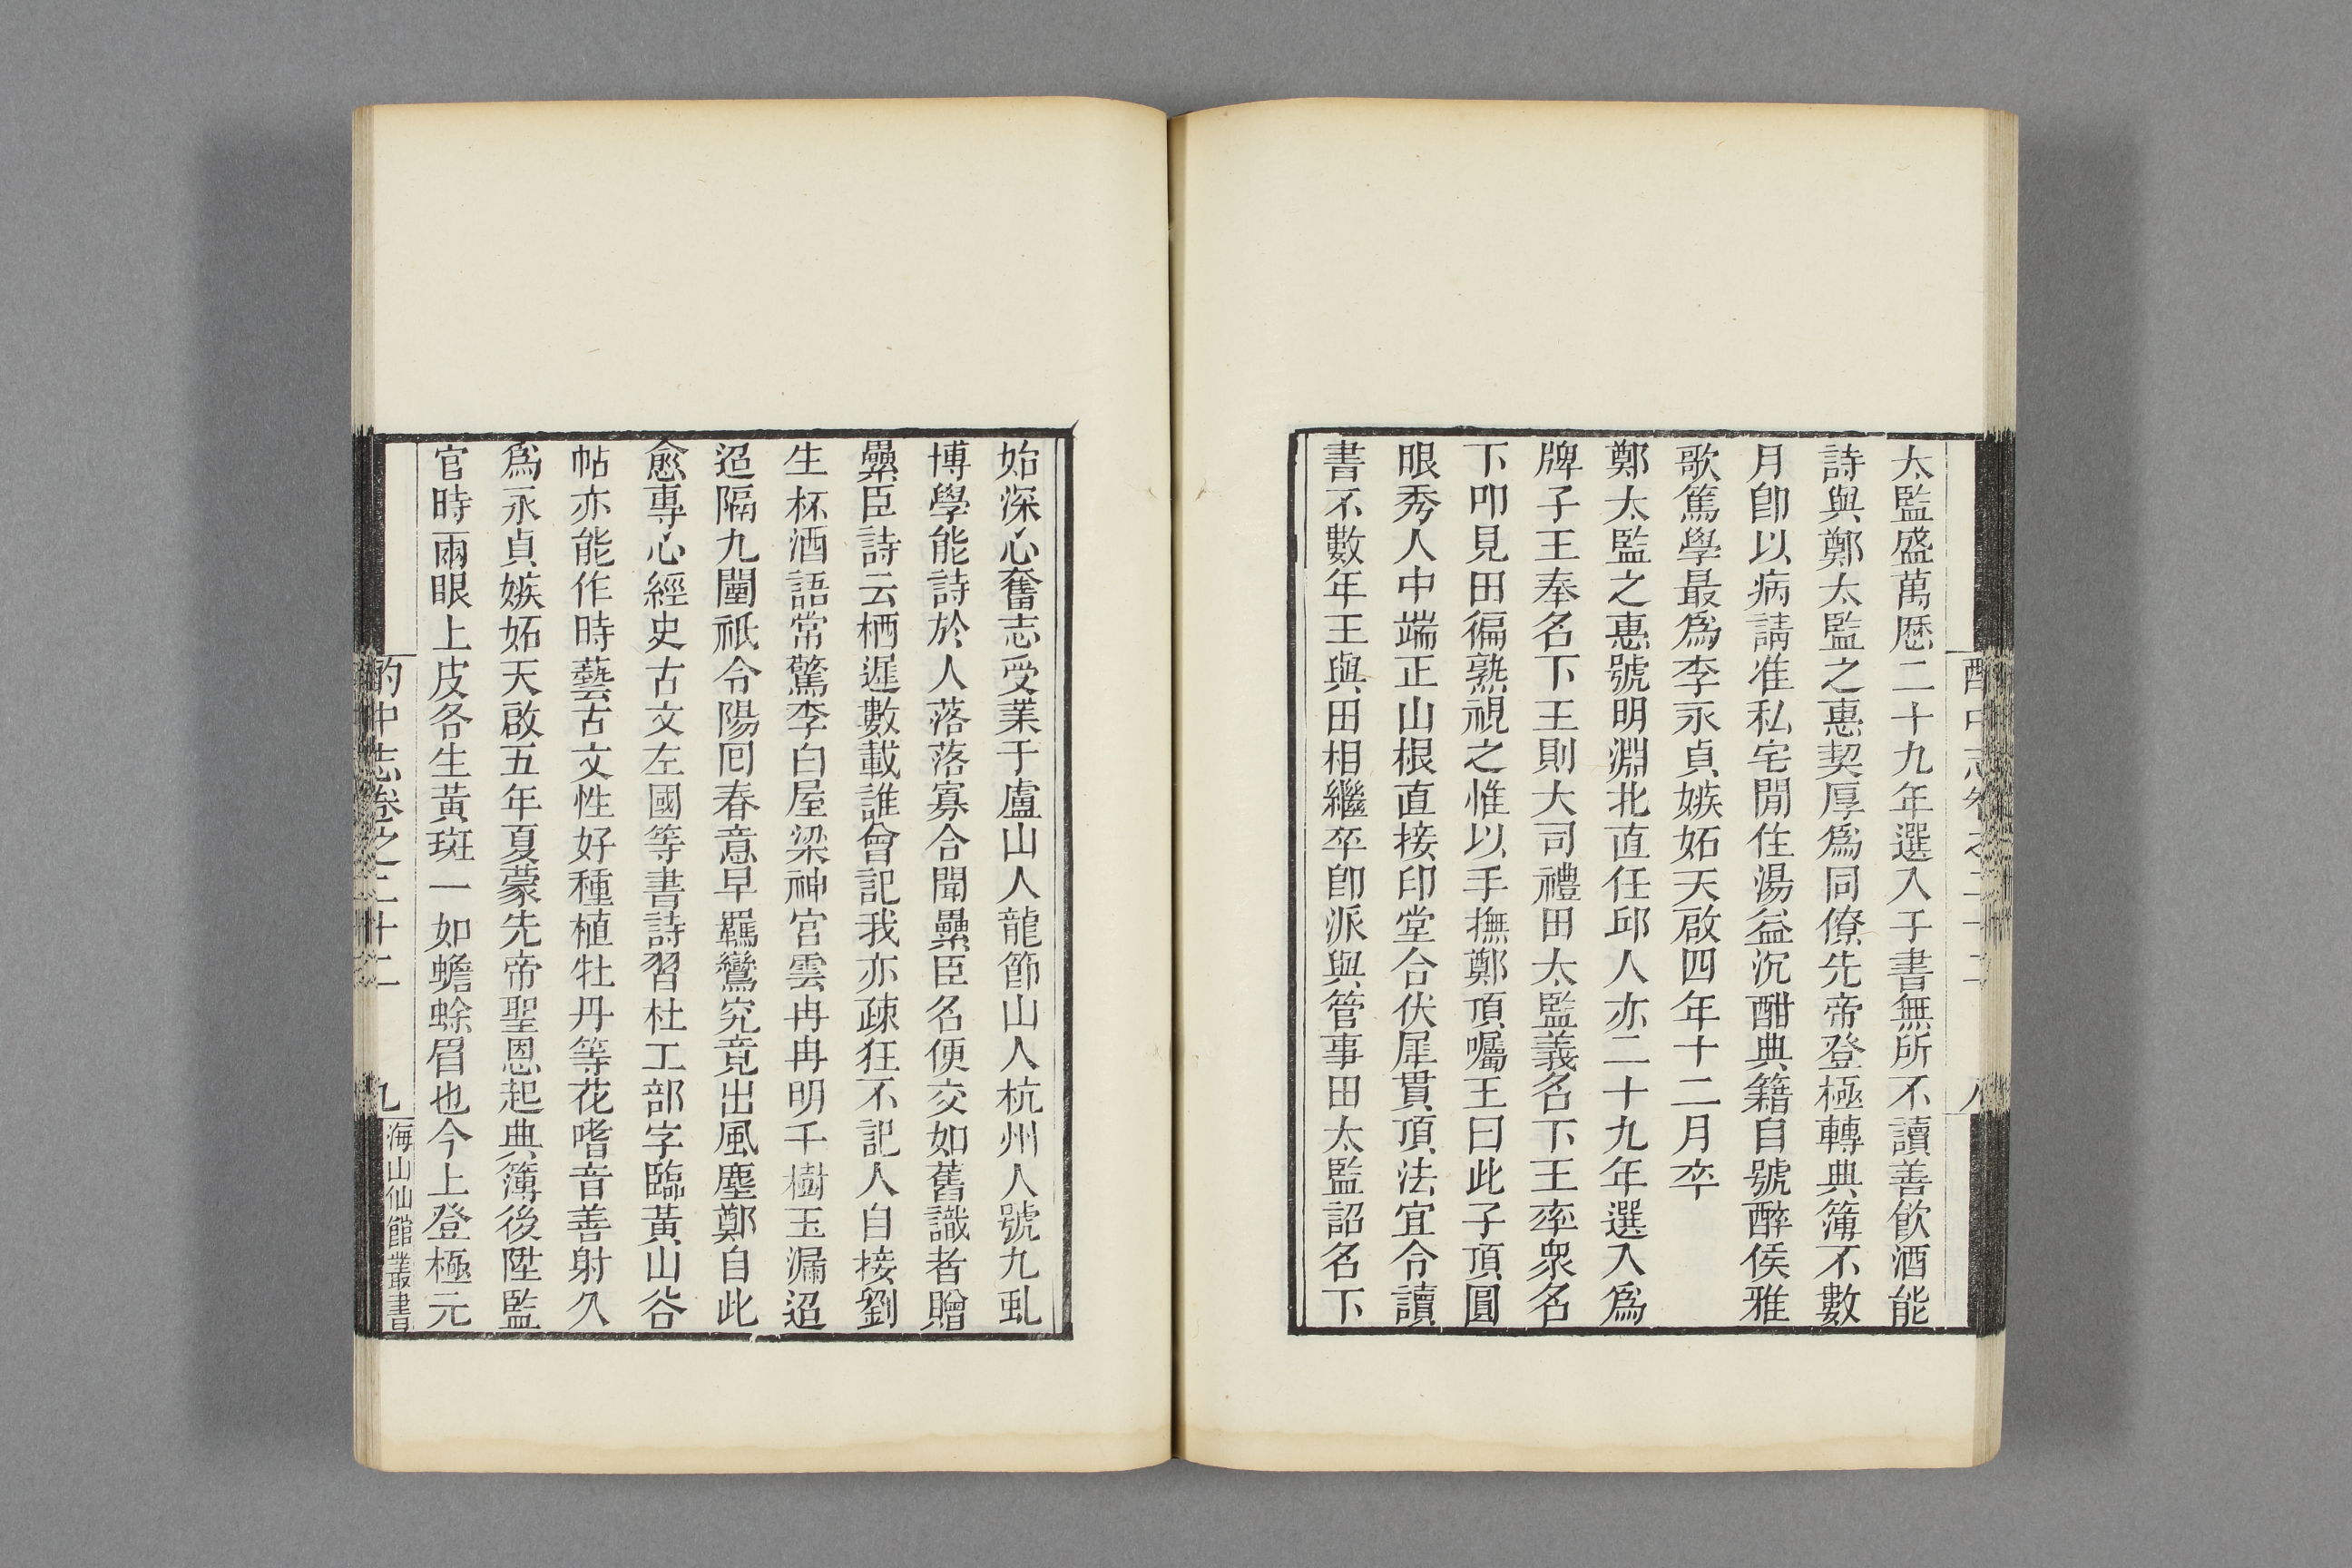 太監盛萬厯二十九年選入于書無所不讀善飮酒能
詩與鄭太監之惠契厚爲同僚先帝登極轉典簿不數
月卽以病請准私宅閒住湯益沉酣典籍自號醉侯雅
歌篤學最爲李永貞嫉妬天啟四年十二月卒
鄭太監之惠號明淵北直任邱人亦二十九年選入爲
牌子王奉名下王則大司禮田太監義名下王率衆名
下叩見田徧熟視之惟以手撫鄭頂囑王曰此子頂圓
眼秀人中端正山根直接印堂合伏犀貫頂法宜令讀
書不數年王與田相繼卒卽派與管事田太監詔名下
始深心奮志受業于盧山人龍節山人杭州人號九虬
博學能詩於人落落寡合聞纍臣名便交如舊識者贈
纍臣詩云栖遲數載誰曾記我亦疎狂不記人自接劉
生杯酒語常驚李白屋梁神宫雲冉冉明千樹玉漏迢
迢隔九闉祇令陽囘春意早羈鸞究竟出風塵鄭自此
愈專心經史古文左國等書詩習杜工部字臨黃山谷
帖亦能作時藝古文性好種植牡丹等花嗜音善射久
爲永貞嫉妬天啟五年夏蒙先帝聖恩起典簿後陞監
官時兩眼上皮各生黃斑一如蟾蜍眉也今上登極元
酌中志卷之二十二
九
海山仙館叢書